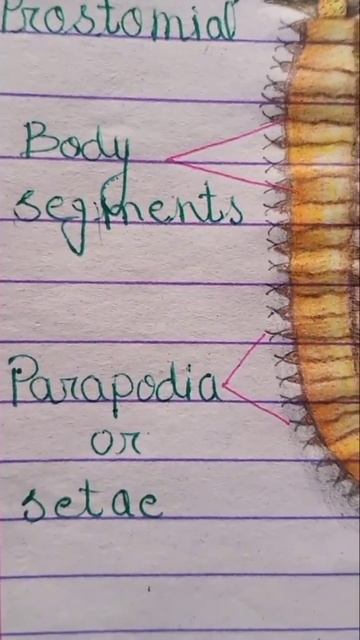 Prostomial
Body
segments
Parapodia
or
setae